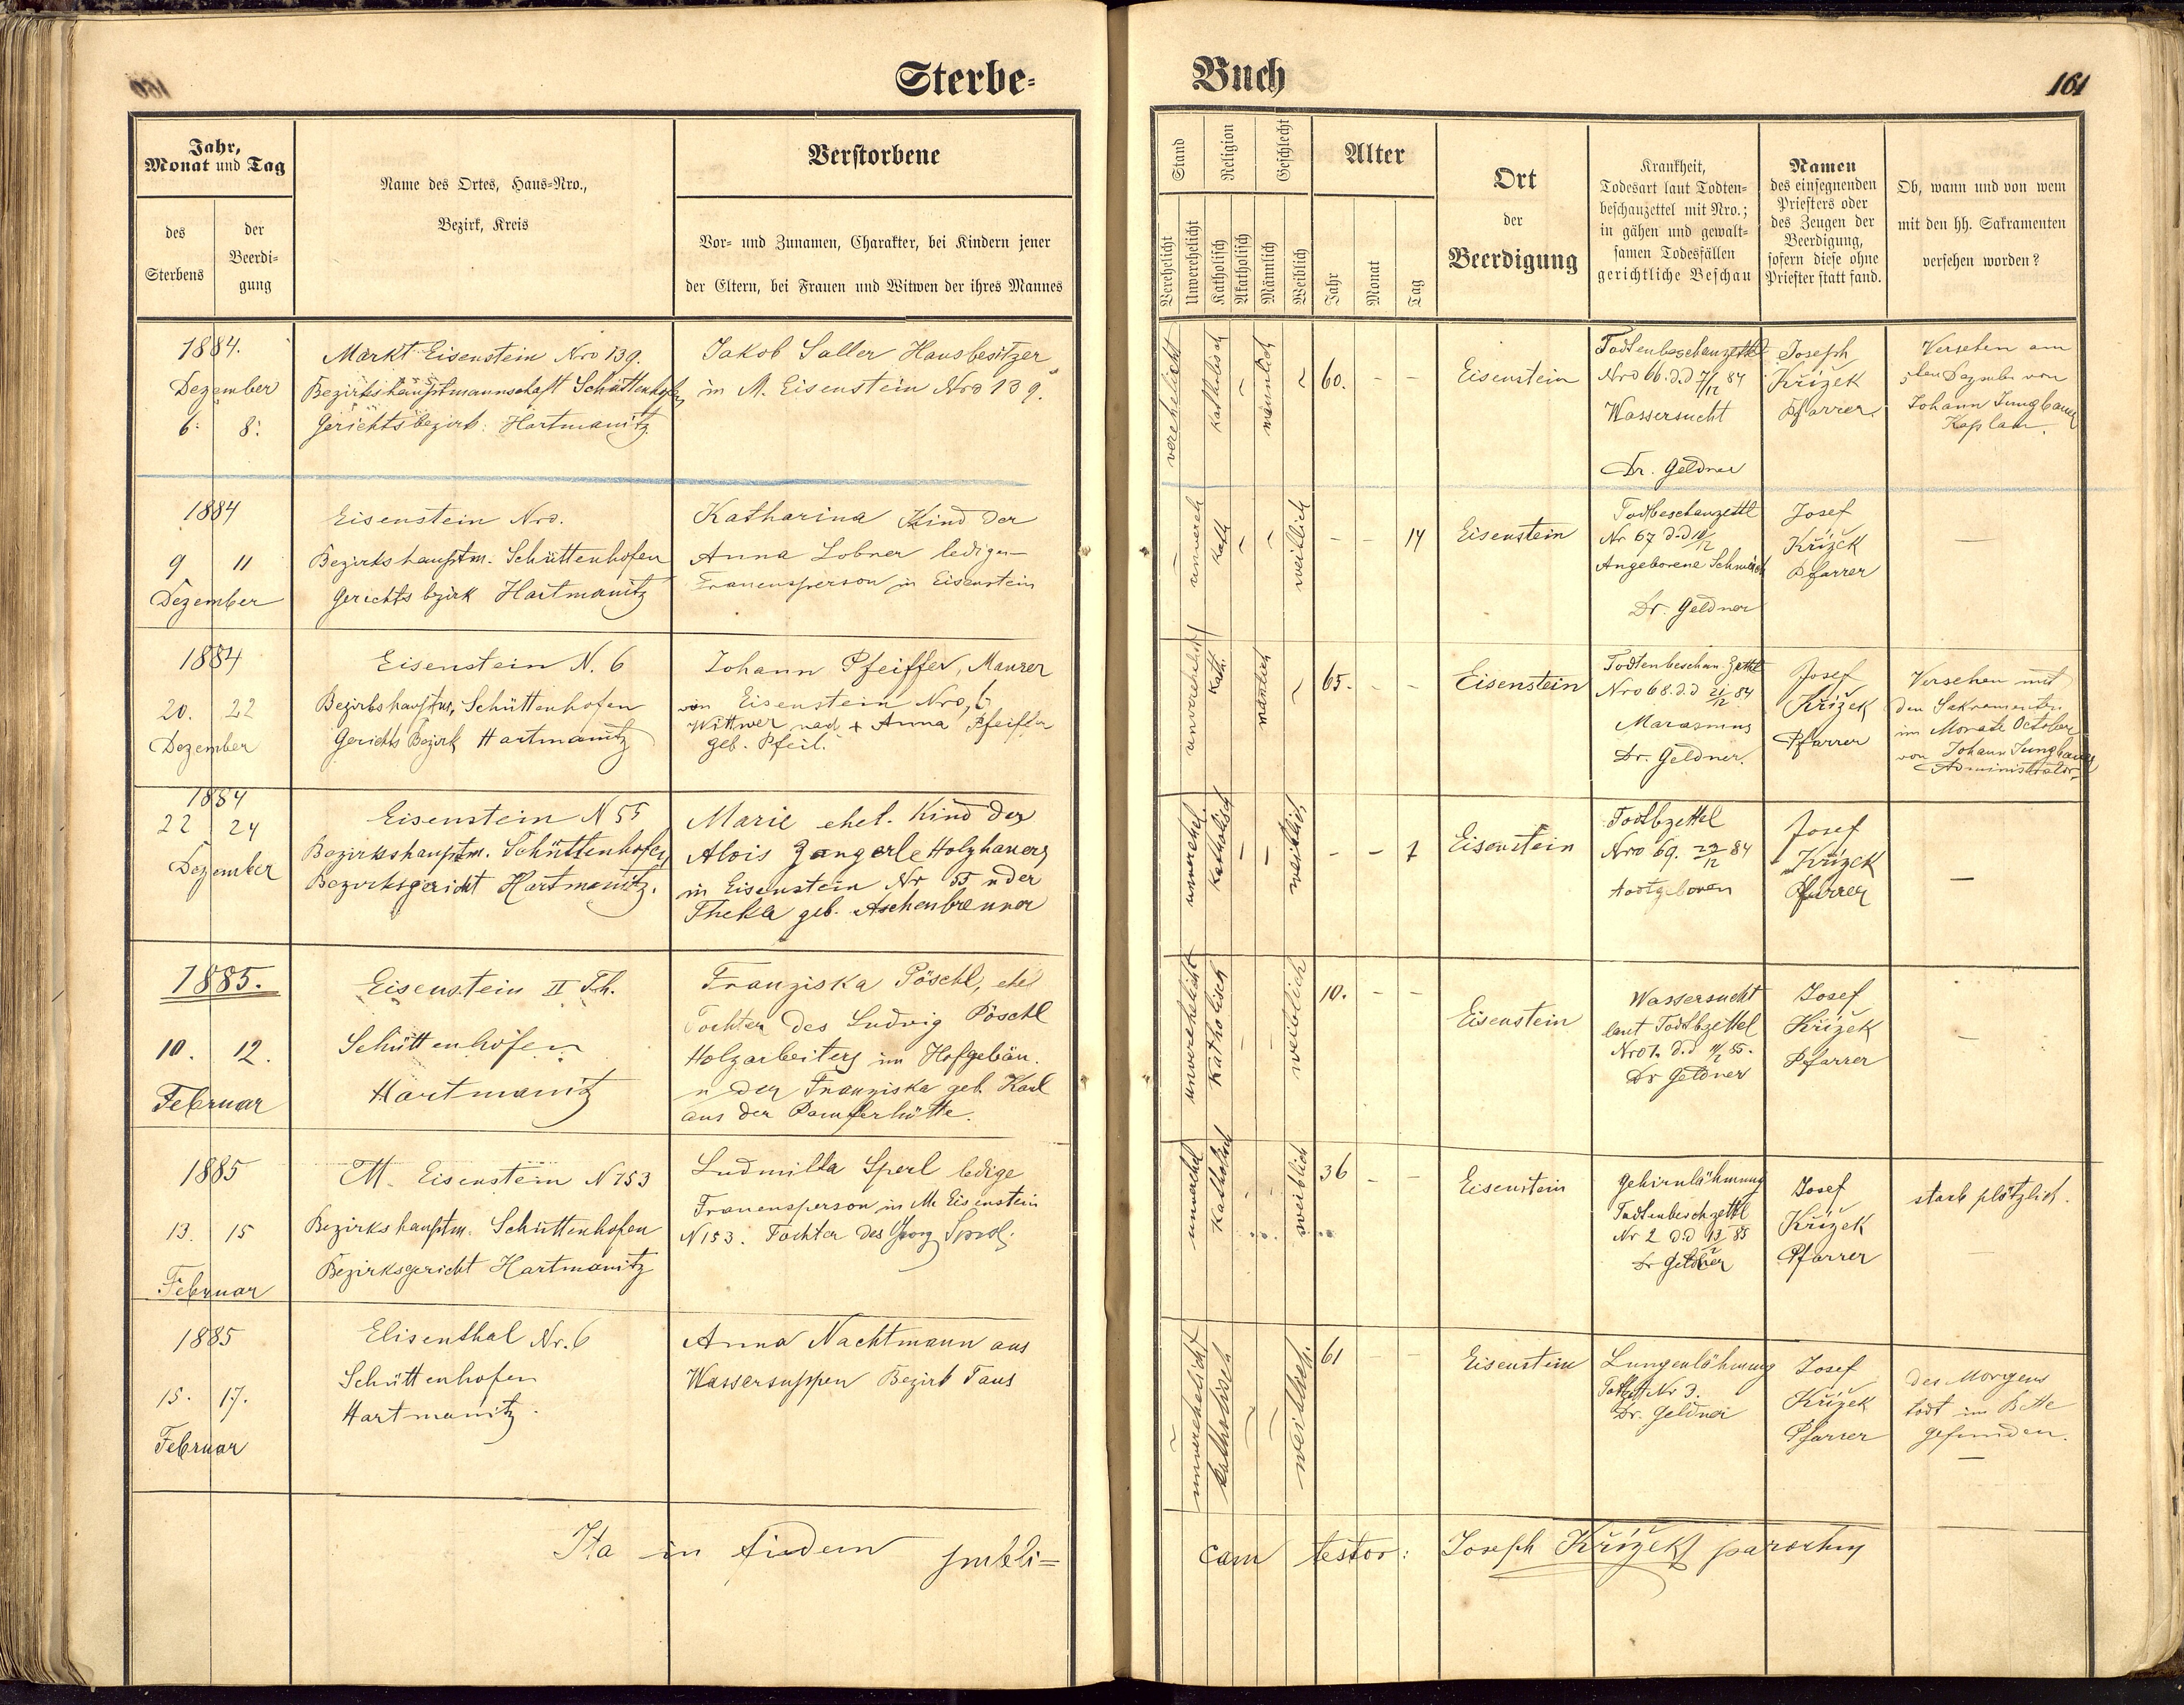 Sterbe-
Buch
161
Jahr,
Monat und Tag
des
Sterbens
der
Beerdi-
gung
Name des Ortes, Haus-Nro.,
Bezirk, Kreis
Verstorbene
Vor- und Zunamen, Charakter, bei Kindern jener
der Eltern, bei Frauen und Witwen der ihres Mannes
Stand
Religion
Geschlecht
Alter
Verehelicht
Unverehelicht
Katholisch
Akatholisch
Männlich
Weiblich
Jahr
Monat
Tag
Ort
der
Beerdigung
Krankheit,
Todesart laut Todten-
beschauzettel mit Nro.;
in gähen und gewalt-
samen Todesfällen
gerichtliche Beschau
Namen
des einsegnenden
Priesters oder
des Zeugen der
Beerdigung,
sofern diese ohne
Priester statt fand.
Ob, wann und von wem
mit den hh. Sakramenten
versehen worden?
1884.
Dezember
6. 8.
Markt Eisenstein Nro 139.
Bezirkshauptmannschaft Schüttenhofen
Gerichtsbezirk: Hartmanitz
Jakob Saller Hausbesitzer
in M. Eisenstein Nro 139.
verehelicht
katholisch
–
männlich
–
60. – –
Eisenstein
Todtenbeschauzettel
Nro 66. d.d 7/12 84
Wassersucht
Dr. Geldner
Joseph
Křížek
Pfarrer
Versehen am
5ten Dezember von
Johann Jungbauer
Kaplan.
1884
9 11
Dezember
Eisenstein Nro.
Bezirkshauptm. Schüttenhofen
Gerichts bezirk Hartmanitz
Katharina Kind der
Anna Lobner ledigen
Frauensperson in Eisenstein
–
unvereh
kath
–
–
weiblich
– – 14
Eisenstein
Todtbeschauzettl
Nr 67 d.d 10/12
Angeborene Schwäche
Dr. Geldner
Josef
Křížek
Pfarrer
–
1884
20. 22
Dezember
Eisenstein N. 6
Bezirkshauptm. Schüttenhofen
Gerichts Bezirk Hartmanitz
Johann Pfeiffer, Maurer
von Eisenstein Nro, 6
Wittwer nach + Anna Pfeiffer
geb. Pfeil.
unverehelicht
kath.
mänlich
–
65. – –
Eisenstein
Todtenbeschau Zettl
Nro 68. d.d 21/12 84
Marasmus
Dr. Geldner.
Josef
Křížek
Pfarrer
Versehen mit
den Sakramenten
im Monate October
von Johann Jungbauer
Administrator
1884
22 24
Dezember
Eisenstein N 55
Bezirkshauptm. Schüttenhofen
Bezirksgericht Hartmanitz.
Marie ehel. Kind des
Alois Zangerle Holzhauers
in Eisenstein Nr 55 u der
Thekla geb. Aschenbrenner
unverehel
katholisch
–
–
weiblich
– – 1
Eisenstein
Todtbzettel
Nro 69. 22/12 84
todtgeboren
Josef
Křížek
Pfarrer
–
1885.
10. 12.
Februar
Eisenstein II Th.
Schüttenhofen
Hartmanitz
Franziska Pöschl, ehel
Tochter des Ludwig Pöschl
Holzarbeiters im Hofgebäu.
u der Franziska geb. Karl
aus der Pamferhütte.
unverehelicht
katholisch
–
–
weiblich
10. – –
Eisenstein
Wassersucht
laut Todtbzettel
Nro 1. d.d 11/2 85.
Dr Geldner
Josef
Křížek
Pfarrer
–
1885
13. 15
Februar
M. Eisenstein N 153
Bezirks hauptm. Schüttenhofen
Bezirksgericht Hartmanitz
Ludmilla Sperl ledige
Frauensperson in M. Eisenstein
N 153. Tochter des Georg Sperl.
unverehel
katholisch
–
–
weiblich
36 – –
Eisenstein
Gehirnlähmung
Todtenbeschzettl
Nr 2 d.d 13/2 85
Dr Geldner
Josef
Křížek
Pfarrer
starb plötzlich.
–
1885
15. 17.
Februar
Elisenthal Nr. 6
Schüttenhofen
Hartmanitz.
Anna Nachtmann aus
Wassersuppen Bezirk Taus
–
unverehelicht
katholisch
–
–
weiblich.
61 – –
Eisenstein
Lungenlähmung
Nr 3.
Dr. Geldner
Josef
Křížek
Pfarrer
des Morgens
todt im Bette
gefunden.
–
Ita in fidem publi=
cam testor: Joseph Křížek parochus